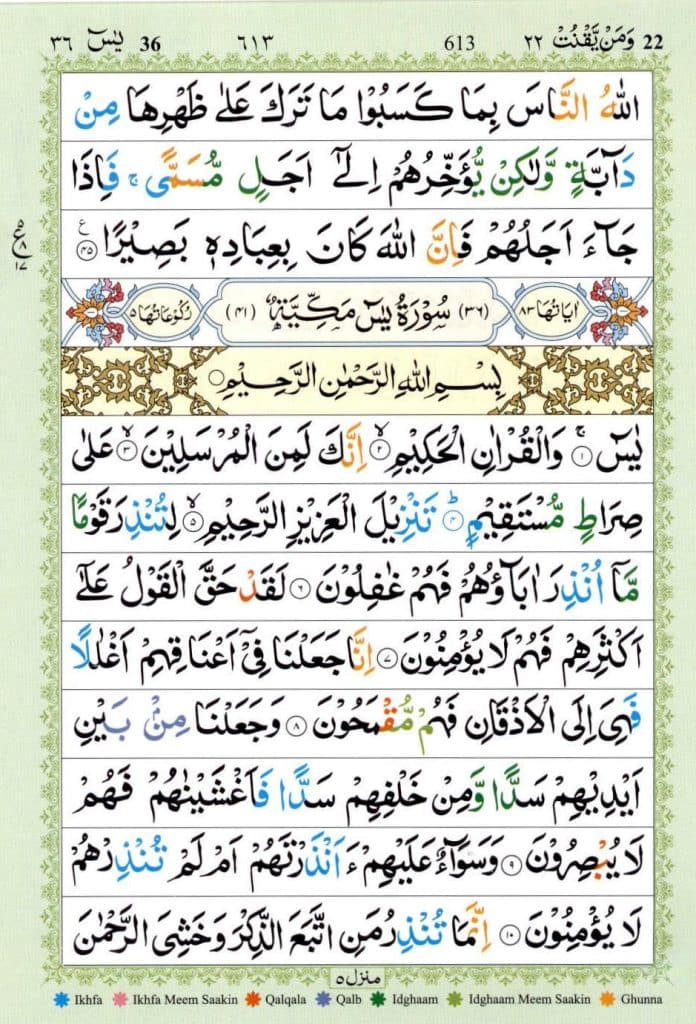 ٣٦ يٰسٓ 36 ٦١٣ 613 وَمَنْ يَّقْنُتْ ٢٢ 22
اللهُ النَّاسَ بِمَا كَسَبُوْا مَا تَرَكَ عَلٰى ظَهْرِهَا مِنْ
دَآبَّةٍ وَّلٰكِنْ يُّؤَخِّرُهُمْ اِلٰٓى اَجَلٍ مُّسَمًّى ۚ فَاِذَا
جَآءَ اَجَلُهُمْ فَاِنَّ اللهَ كَانَ بِعِبَادِهٖ بَصِيْرًا ﴿٤٥﴾ ع
٥ ع ٨ ١٧
اٰيَاتُهَا ٨٣ (٣٦) سُوْرَةُ يٰسٓ مَكِّيَّةٌ (٤١) رُكُوْعَاتُهَا ٥
بِسْمِ اللهِ الرَّحْمٰنِ الرَّحِيْمِ
يٰسٓ ۚ ﴿١﴾ وَالْقُرْاٰنِ الْحَكِيْمِ ۙ ﴿٢﴾ اِنَّكَ لَمِنَ الْمُرْسَلِيْنَ ۙ ﴿٣﴾ عَلٰى
صِرَاطٍ مُّسْتَقِيْمٍ ؕ ﴿٤﴾ تَنْزِيْلَ الْعَزِيْزِ الرَّحِيْمِ ۙ ﴿٥﴾ لِتُنْذِرَ قَوْمًا
مَّاۤ اُنْذِرَ اٰبَآؤُهُمْ فَهُمْ غٰفِلُوْنَ ﴿٦﴾ لَقَدْ حَقَّ الْقَوْلُ عَلٰٓى
اَكْثَرِهِمْ فَهُمْ لَا يُؤْمِنُوْنَ ﴿٧﴾ اِنَّا جَعَلْنَا فِيْٓ اَعْنَاقِهِمْ اَغْلٰلًا
فَهِيَ اِلَى الْاَذْقَانِ فَهُمْ مُّقْمَحُوْنَ ﴿٨﴾ وَجَعَلْنَا مِنْۢ بَيْنِ
اَيْدِيْهِمْ سَدًّا وَّمِنْ خَلْفِهِمْ سَدًّا فَاَغْشَيْنٰهُمْ فَهُمْ
لَا يُبْصِرُوْنَ ﴿٩﴾ وَسَوَآءٌ عَلَيْهِمْ ءَاَنْذَرْتَهُمْ اَمْ لَمْ تُنْذِرْهُمْ
لَا يُؤْمِنُوْنَ ﴿١٠﴾ اِنَّمَا تُنْذِرُ مَنِ اتَّبَعَ الذِّكْرَ وَخَشِيَ الرَّحْمٰنَ
منزل ٥
Ikhfa Ikhfa Meem Saakin Qalqala Qalb Idghaam Idghaam Meem Saakin Ghunna